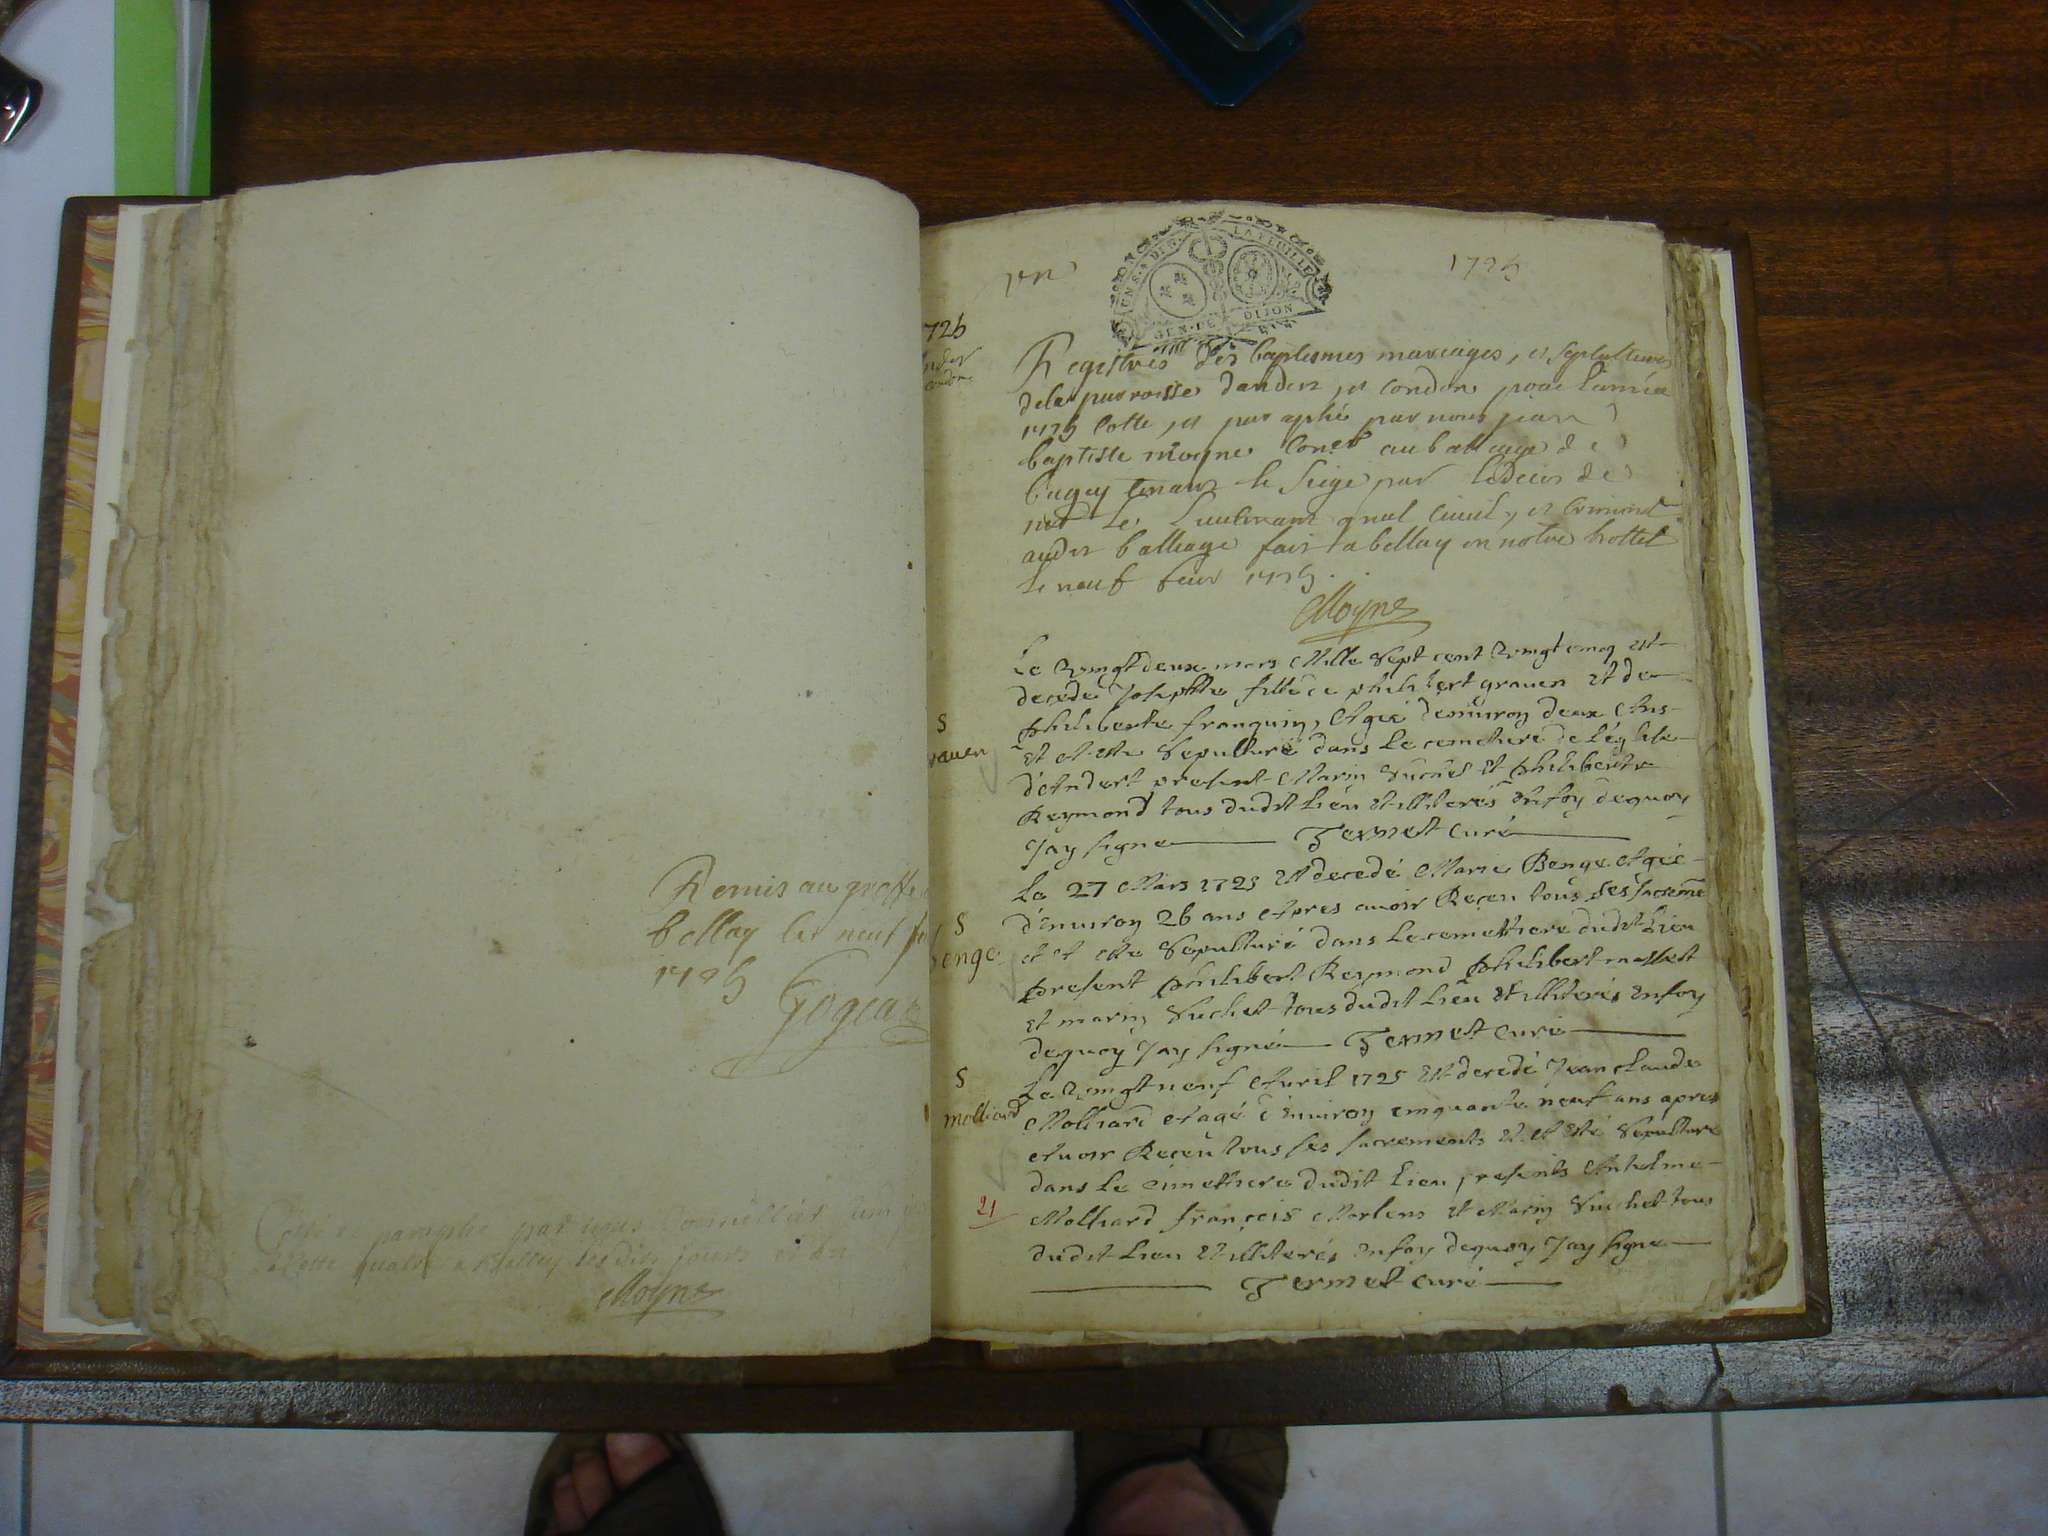 Remis au greffe
bellay le neuf
1725
Cotté et paraphé par nous Conseiller
a Belley les dix jours
Moyne
1725
S
raven
S
enge
S
molliard
21
un
1725
GEN. DE DIJON
LA FEUILLE
Registres des baptesmes mariages, et sepultures
de la parroisse dandert et condon pour lannée
1725 Cotte, et paraphé par nous jean
baptiste moyne Coner au balliage de
bugey tenant le siege par le deces de
le Lieutenant gnal Civil, et Criminel
audit balliage fait a bellay en notre hottel
le neuf feur 1725.
Moyne
Le vingt deux mars Mille Sept cent vingt cinq est
decedé Josephte fille de philibert graven et de
philiberte franquin, Agée denviron deux Ans
Et A Esté Sepulturé dans le cemetiere de l'église
d'Andert present Marin Suchet Et philiberte
Reymond tous dudit lieu Et illiterés En foy dequoy
Jay signe Termet Curé
Le 27 Mars 1725 Est decedé Marie Benge Agée
d'Environ 26 ans Apres avoir Reçeu tous Ses sacremens
et A Esté Sepulturé dans le cemettiere dudit Lieu
present philibert Reymond philibert masset
et marin Suchet tous dudit Lieu Et illiterés En foy
dequoy Jay signé Termet Curé
Le Vingt neuf Avril 1725 Est decedé Jean claude
Molliard Aagé d'Environ cinquante neuf ans apres
Avoir Reçeu tous ses sacrements Et A Esté Sepulturé
dans le cimethiere dudit Lieu presents Anthelme
Molliard françois Merlens Et Marin Suchet tous
dudit Lieu Et illiterés En foy dequoy Jay signe
Termet Curé